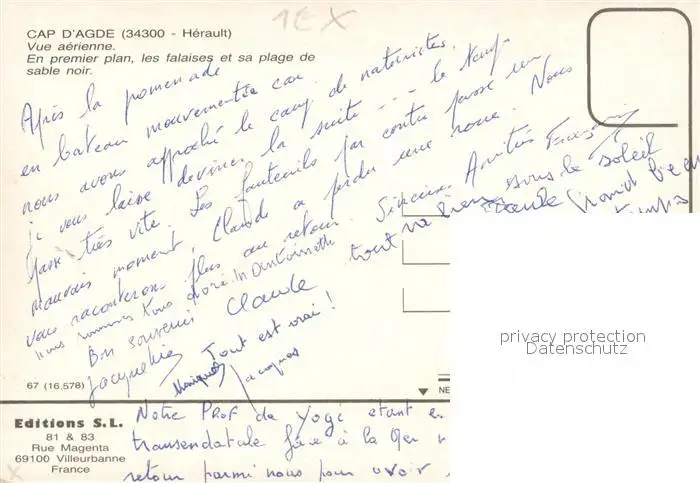 1E X
CAP D'AGDE (34300 - Hérault)
Vue aérienne.
En premier plan, les falaises et sa plage de
sable noir.
Après la promenade
en bateau mouvementée car
nous avons approché le camp de naturistes.
je vous laisse deviner la suite --- le temps
passe très vite. Les fauteuils par contre passe un
mauvais moment, Claude a perdu une roue. Nous
vous raconterons plus au retour. Sincères Amitiés
nous sommes tous
tout va bien sous le soleil
Grand beau
temps
Bon souvenir Claude
Jacqueline Tout est vrai !
Monique Jacques
67 (16.578)
NE
privacy protection
Datenschutz
Editions S.L.
81 & 83
Rue Magenta
69100 Villeurbanne
France
Notre Prof de Yogi étant e
transendatale face à la
retour parmi nous pour avoir